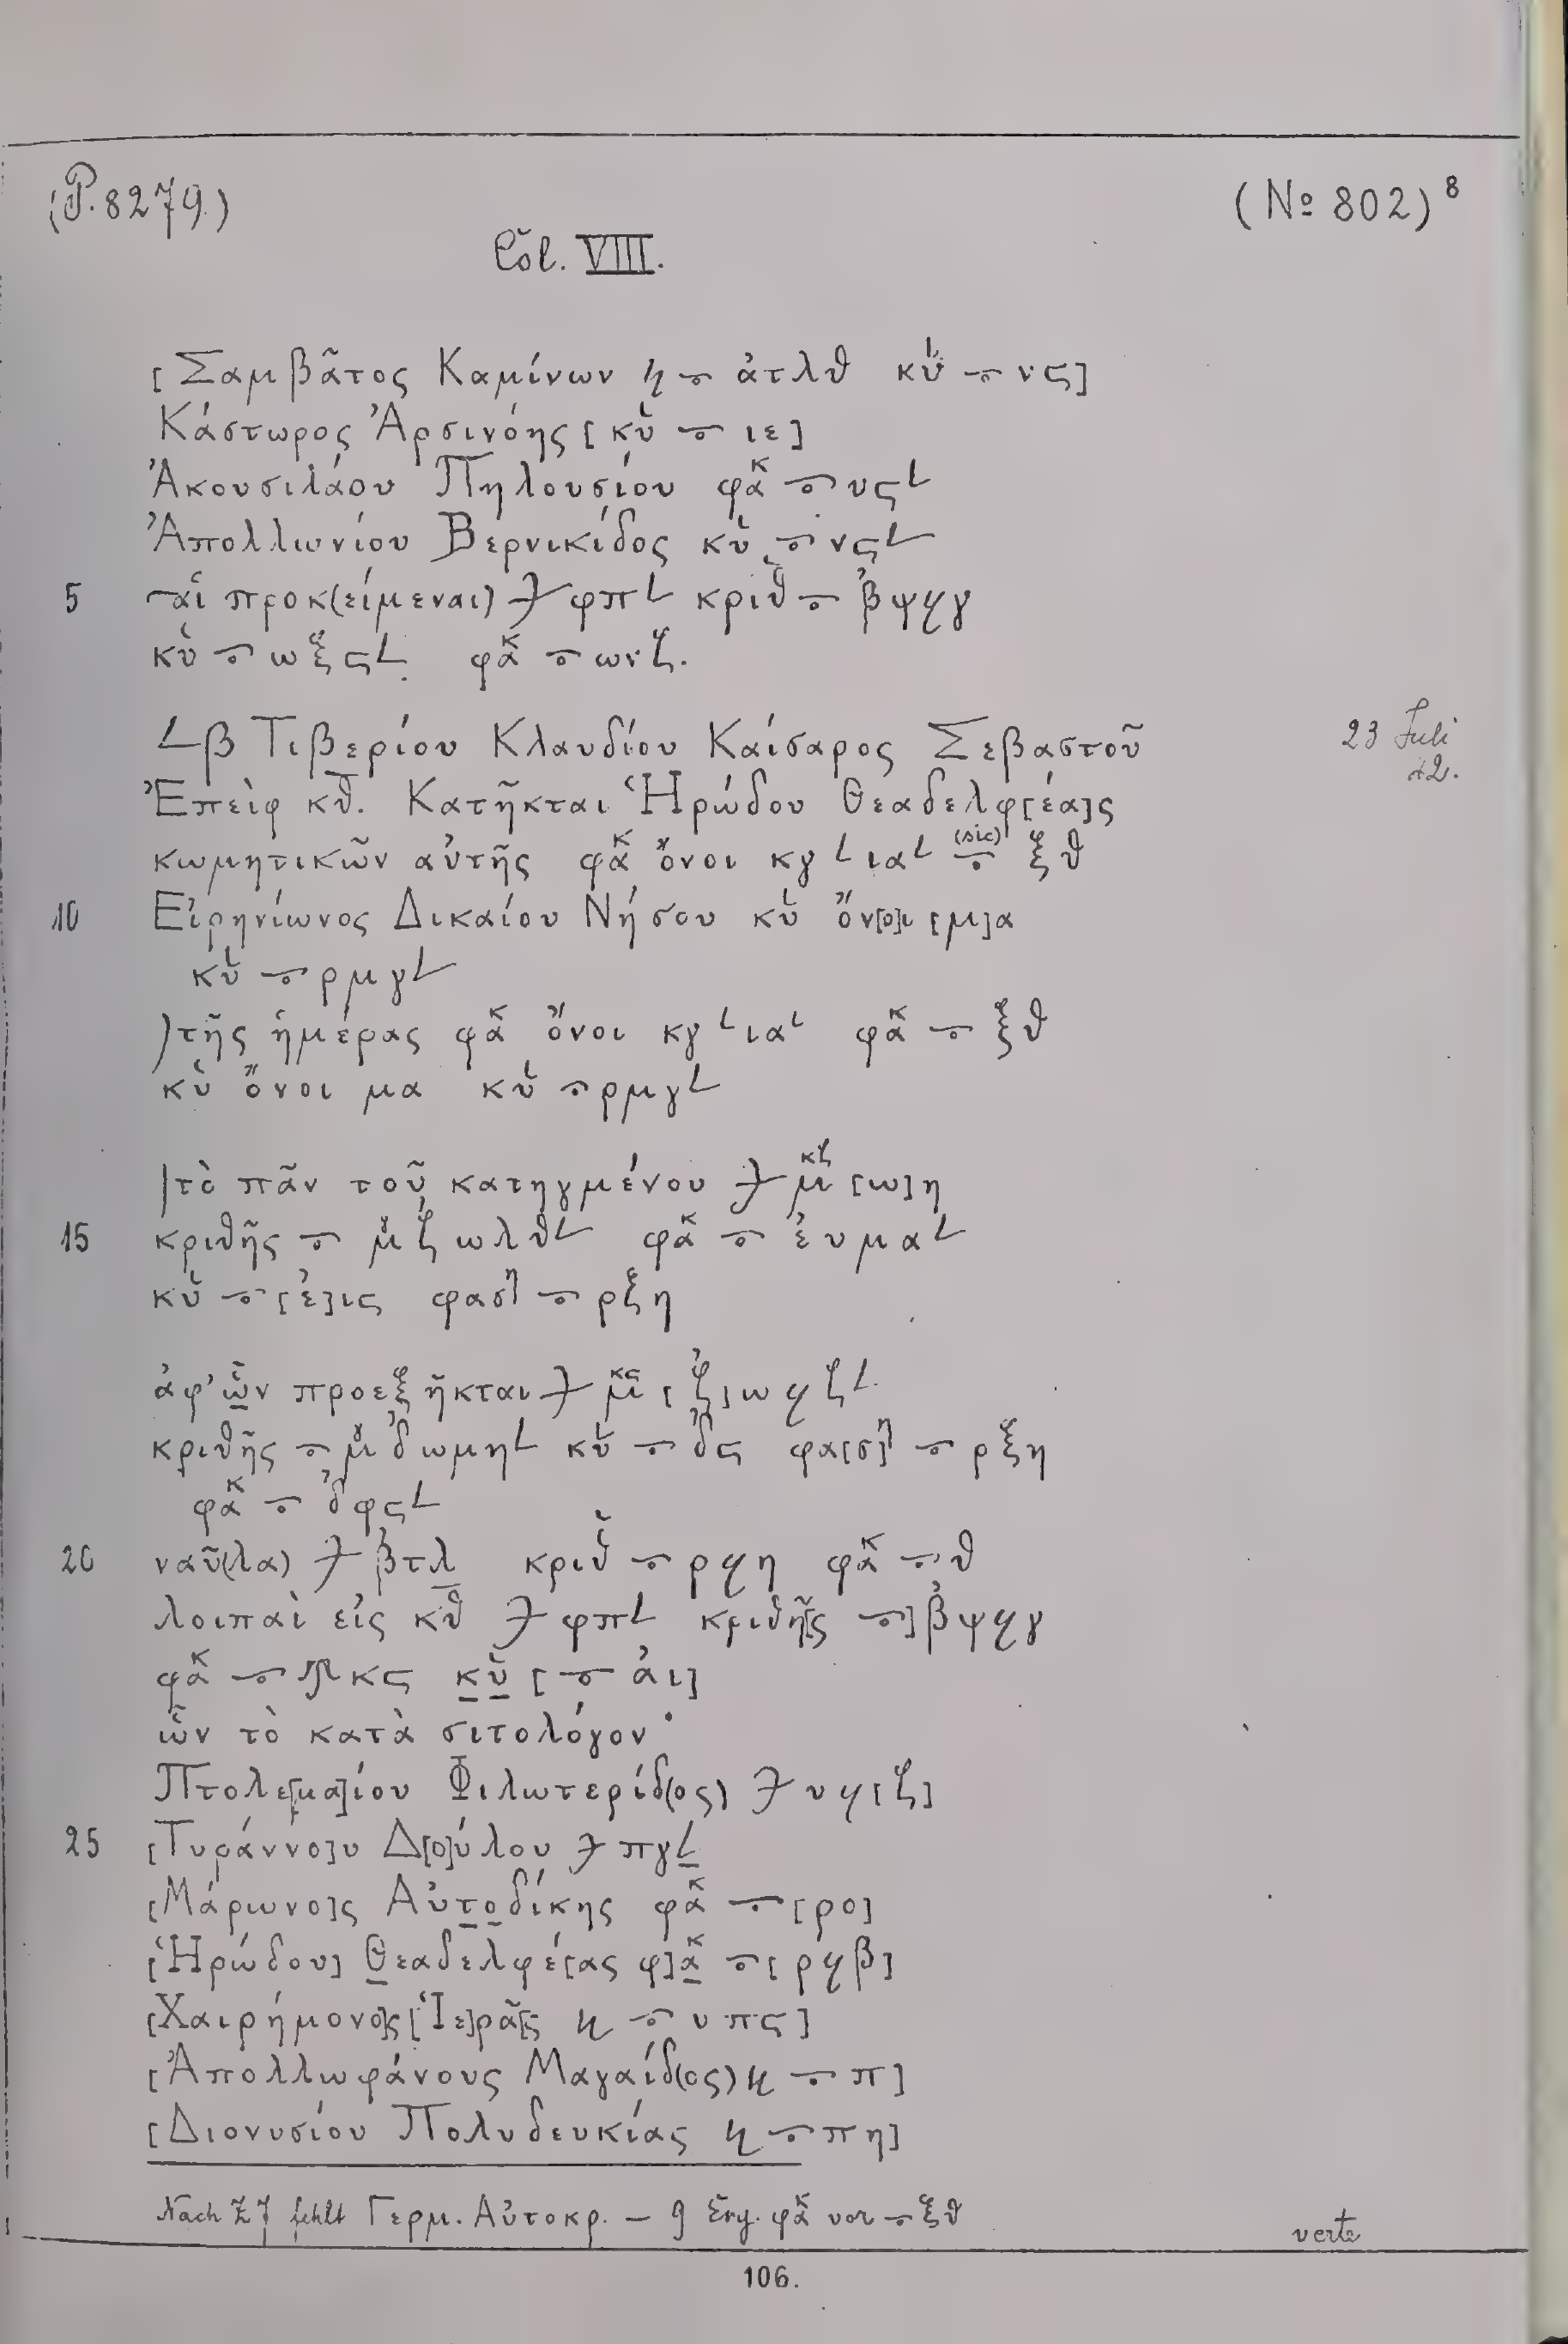 (P. 8279) (№ 802) 8
Col. VIII.
[Σαμβᾶτος Καμίνων ϗ ⲻ ἀτλθ κὐ ⲻ νϛ]
Κάστωρος Ἀρσινόης [κὐ ⲻ ιε]
Ἀκουσιλάου Πηλουσίου φακ ⲻ υϛL
Ἀπολλωνίου Βερνικίδος κὐ ⲻ νϛL
5 αἱ προκ(είμεναι) φπL κριθ ⲻ ͵βψϙγ
κὐ ⲻ ωξϛL φακ ⲻ ωνζ.
Lβ Τιβερίου Κλαυδίου Καίσαρος Σεβαστοῦ 23 Juli
Ἐπεὶφ κθ. Κατῆκται Ἡρώδου Θεαδελφ[έα]ς 42.
κωμητικῶν αὐτῆς φακ ὄνοι κγ L ια L (sic) ⲻ ξθ
10 Εἰρηνίωνος Δικαίου Νήσου κὐ ὄν[ο]ι [μ]α
κὐ ⲻ ρμγL
)τῆς ἡμέρας φακ ὄνοι κγ L ια L φακ ⲻ ξθ
κὐ ὄνοι μα κὐ ⲻ ρμγL
)τὸ πᾶν τοῦ κατηγμένου μκζ [ω]η
15 κριθῆς ⲻ μ ζωλθL φακ ⲻ ͵ευμαL
κὐ ⲻ [͵ε]ιϛ φασⁿ ⲻ ρξη
ἀφ' ὧν προεξῆκται μκϛ [͵ζ]ωϙζL
κριθῆς ⲻ μ ͵δωμηL κὐ ⲻ ͵δϛ φα[σ] ⲻ ρξη
φακ ⲻ ͵δφϛL
20 ναῦ(λα) ͵βτλ κριθ ⲻ ρϙη φακ ⲻ θ
λοιπαὶ εἰς κθ φπL κριθῆ[ς ⲻ] ͵βψϙγ
φακ ⲻ ϡκϛ κὐ [ⲻ ͵αι]
ὧν τὸ κατὰ σιτολόγον·
Πτολε[μα]ίου Φιλωτερίδ(ος) υϙ[ζ]
25 [Τυράννο]υ Δ[ο]ύλου πγL
[Μάρωνο]ς Αὐτοδίκης φακ ⲻ [ρο]
[Ἡρώδου] Θεαδελφέ[ας φ]ακ ⲻ [ρϙβ]
[Χαιρήμονο]ς [Ἱε]ρᾶ[ς ϗ ⲻ υπϛ]
[Ἀπολλωφάνους Μαγαίδ(ος) ϗ ⲻ π]
[Διονυσίου Πολυδευκίας ϗ ⲻ πη]
Nach Z 7 fehlt Γερμ. Αὐτοκρ. – 9 Erg. φακ vor ⲻ ξθ
verte
106.